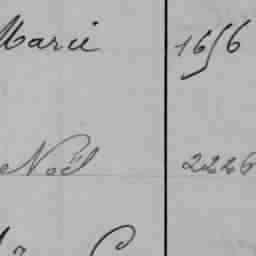 Marie 1656
Noël 2226